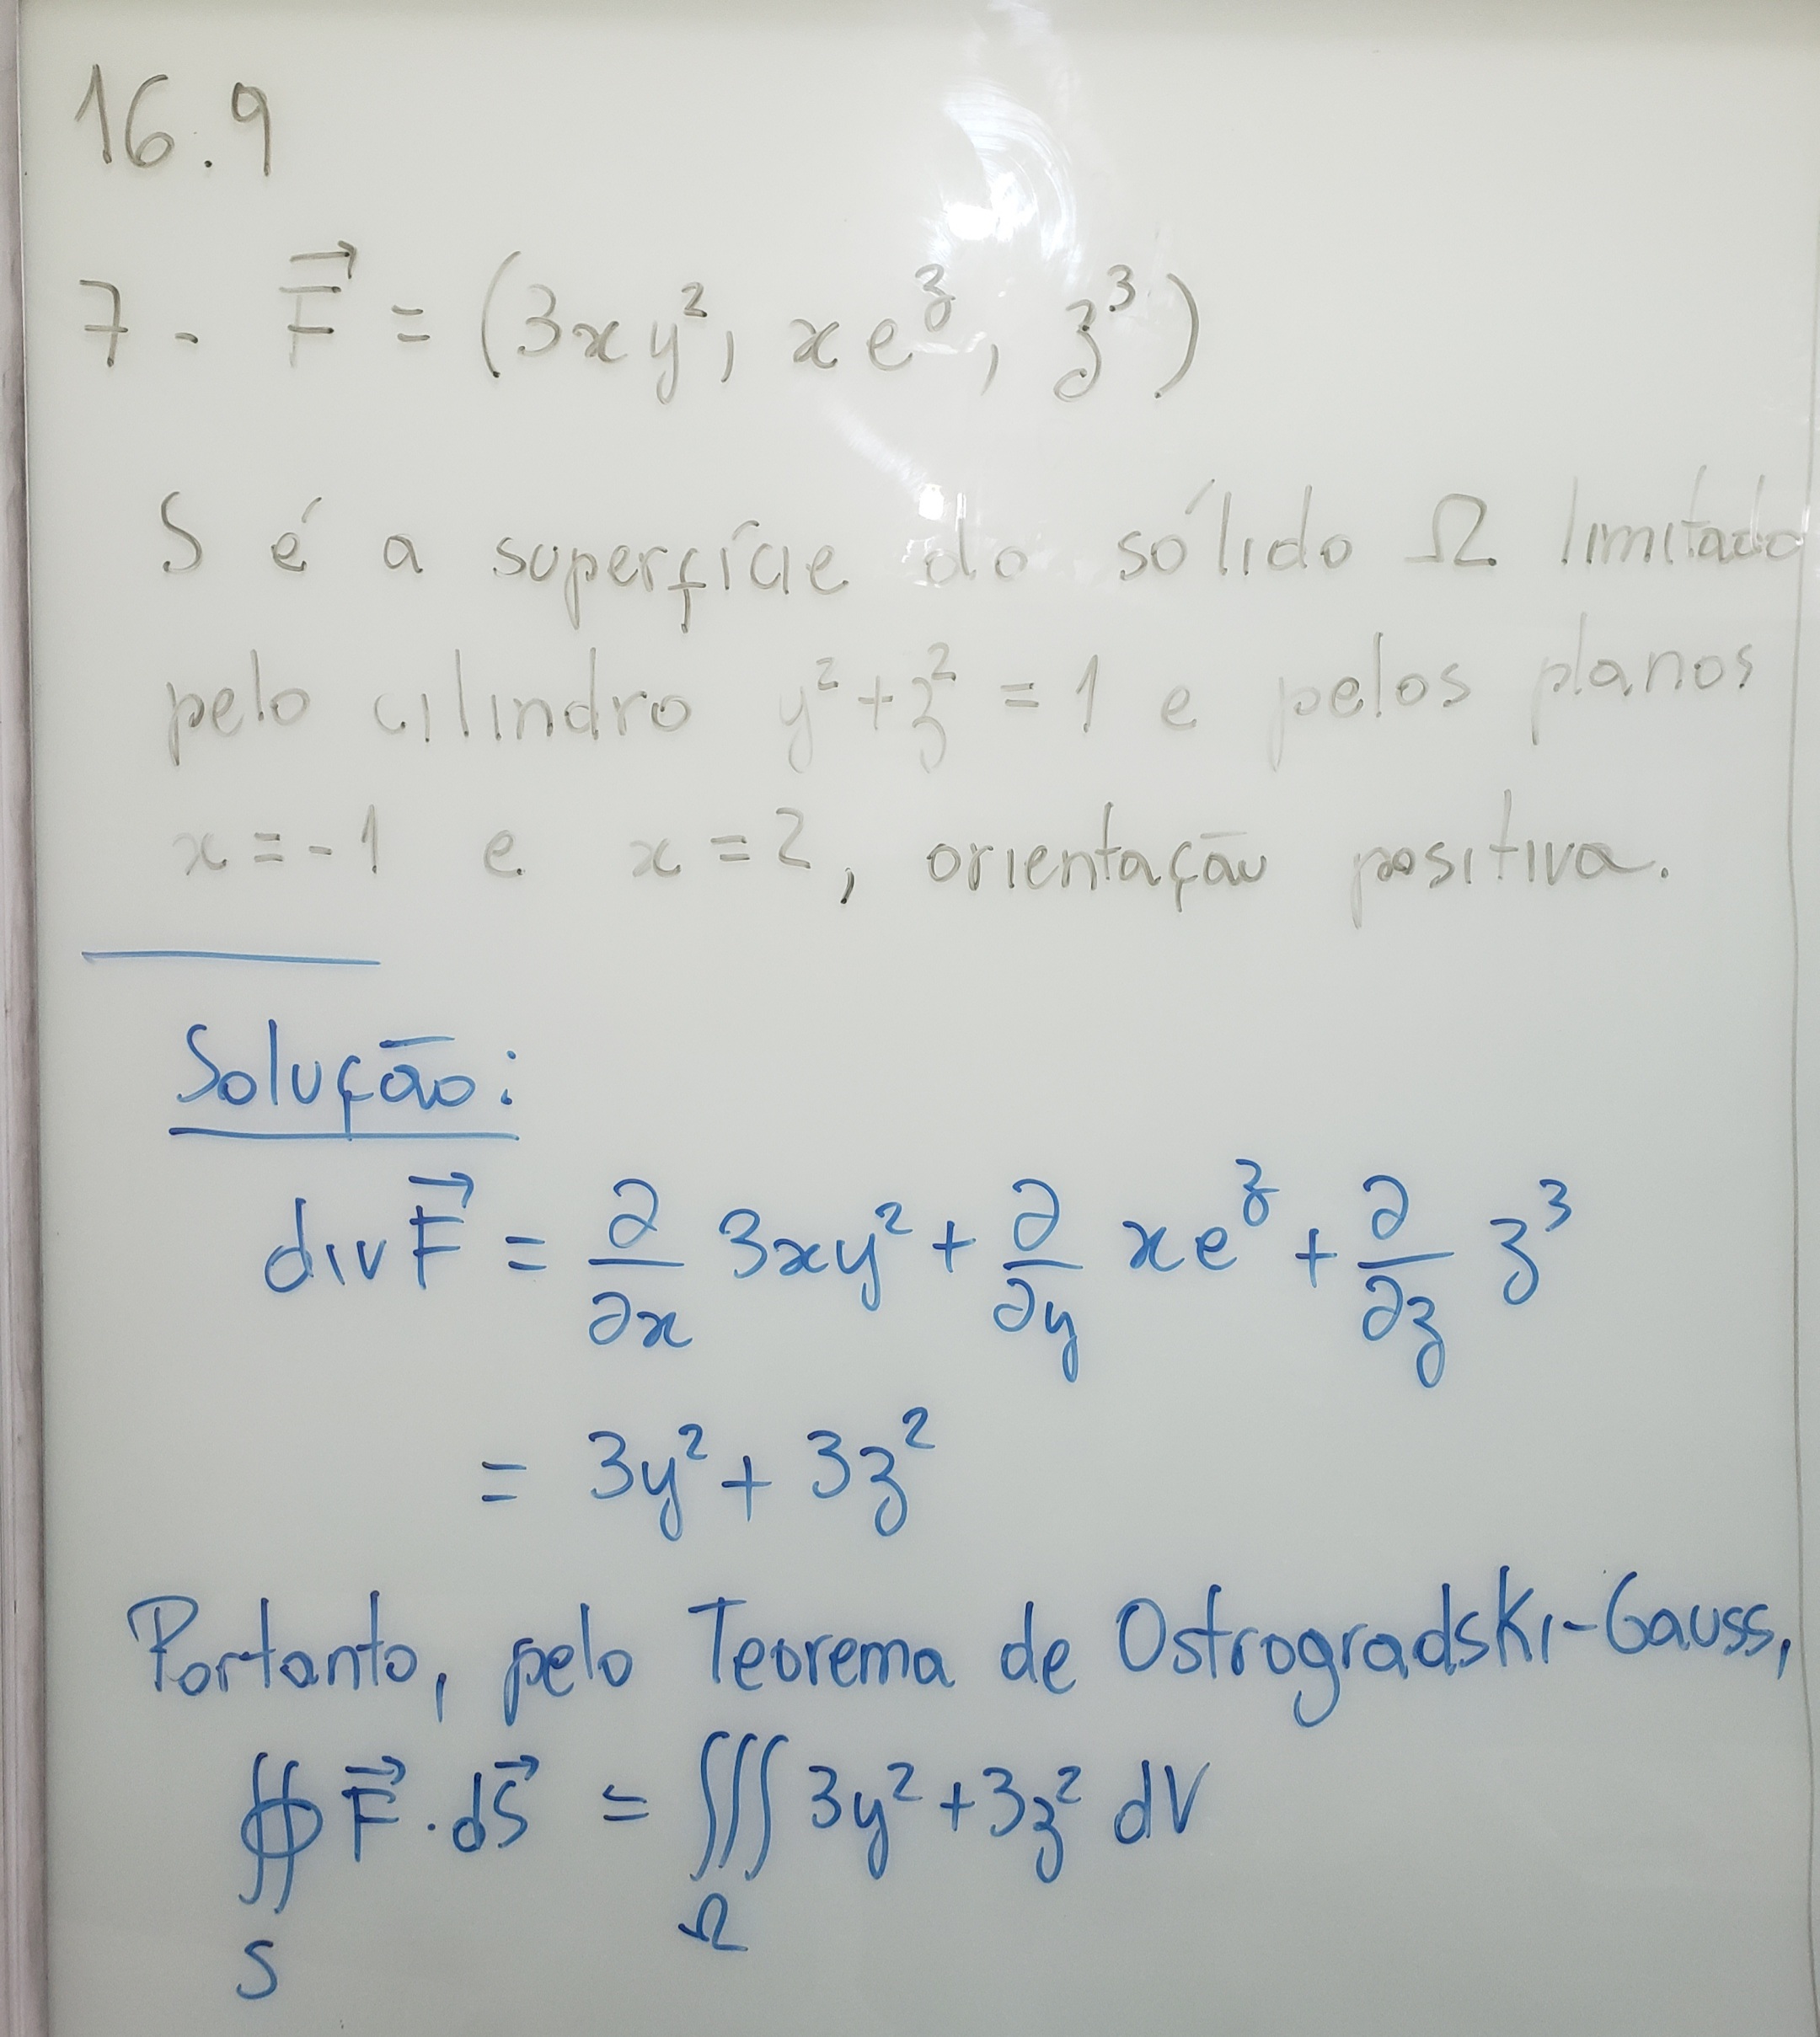 16.9
7. F⃗ = (3xy², xe^z, z³)
S é a superfície do sólido Ω limitado
pelo cilindro y² + z² = 1 e pelos planos
x = -1 e x = 2, orientação positiva.
Solução:
div F⃗ = ∂/∂x 3xy² + ∂/∂y xe^z + ∂/∂z z³
= 3y² + 3z²
Portanto, pelo Teorema de Ostrogradski-Gauss,
∯_S F⃗ · dS⃗ = ∭_Ω 3y² + 3z² dV